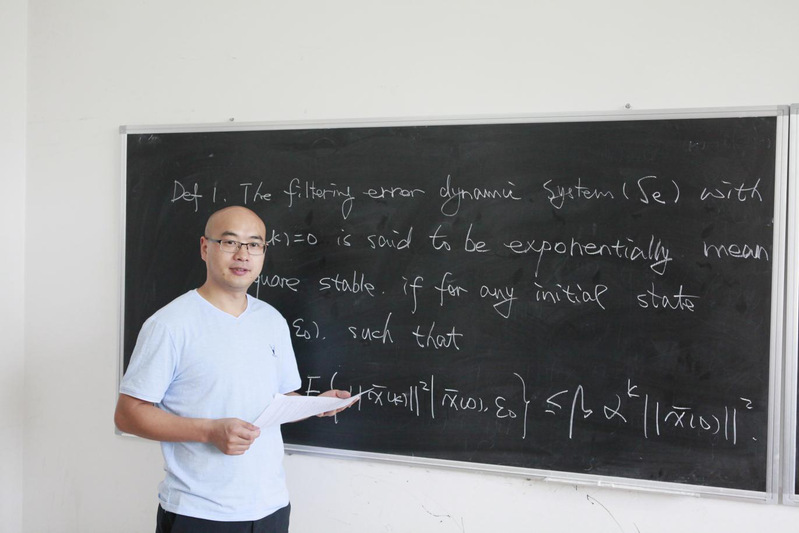 Def 1. The filtering error dynamic System (Se) with
k)=0 is said to be exponentially mean
quare stable. if for any initial state
ε0). such that
E{||x̄(k)||²| x̄(0), ε0} ≤ β α^k ||x̄(0)||².